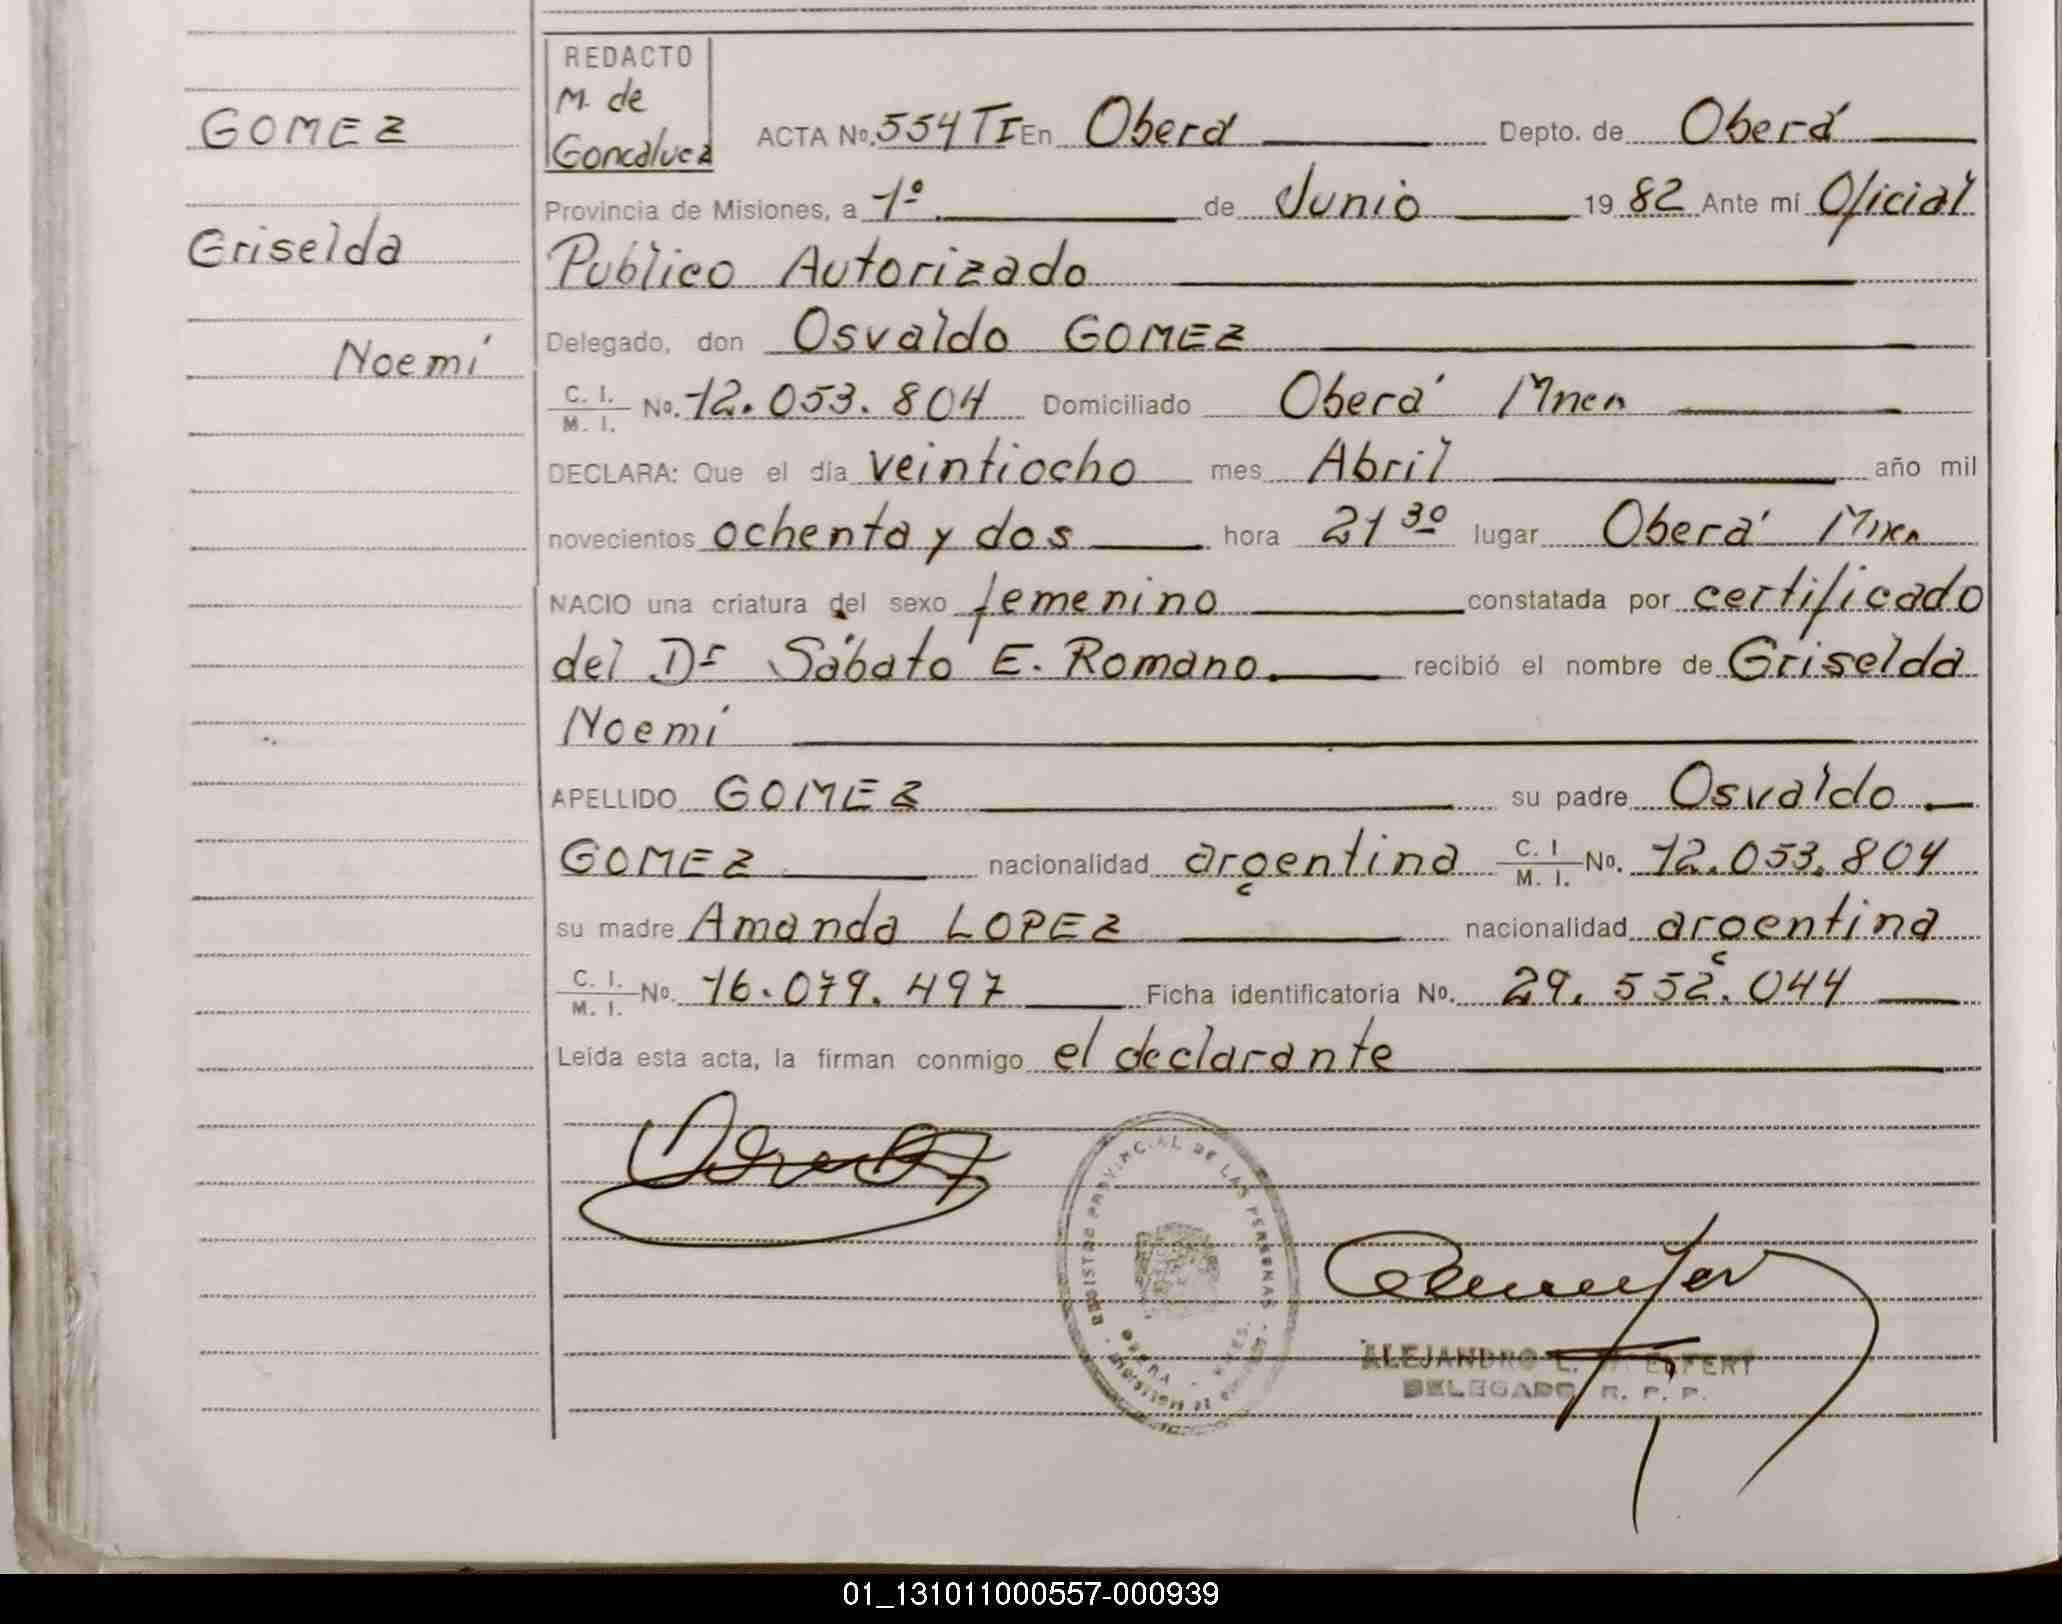 GOMEZ
Griselda
Noemí
REDACTO
M. de
ACTA No. 554 TI En Oberá Depto. de Oberá
Provincia de Misiones, a 1º de Junio 19 82 Ante mí Oficial
Publico Autorizado
Delegado, don Osvaldo GOMEZ
C. I.
M. I. No. 12.053.804 Domiciliado Oberá Mnes
DECLARA: Que el día veintiocho mes Abril año mil
novecientos ochenta y dos hora 21 30 lugar Oberá Mnes
NACIO una criatura del sexo femenino constatada por certificado
del Dr Sábato E. Romano. recibió el nombre de Griselda
Noemí
APELLIDO GOMEZ su padre Osvaldo
GOMEZ nacionalidad argentina C. I
M. I. No. 12.053.804
su madre Amanda LOPEZ nacionalidad argentina
C. I.
M. I. No. 16.079.497 Ficha identificatoria No. 29.552.044
Leída esta acta, la firman conmigo el declarante
REGISTRO PROVINCIAL DE LAS PERSONAS
ALEJANDRO
DELEGADO R. P. P.
01_131011000557-000939